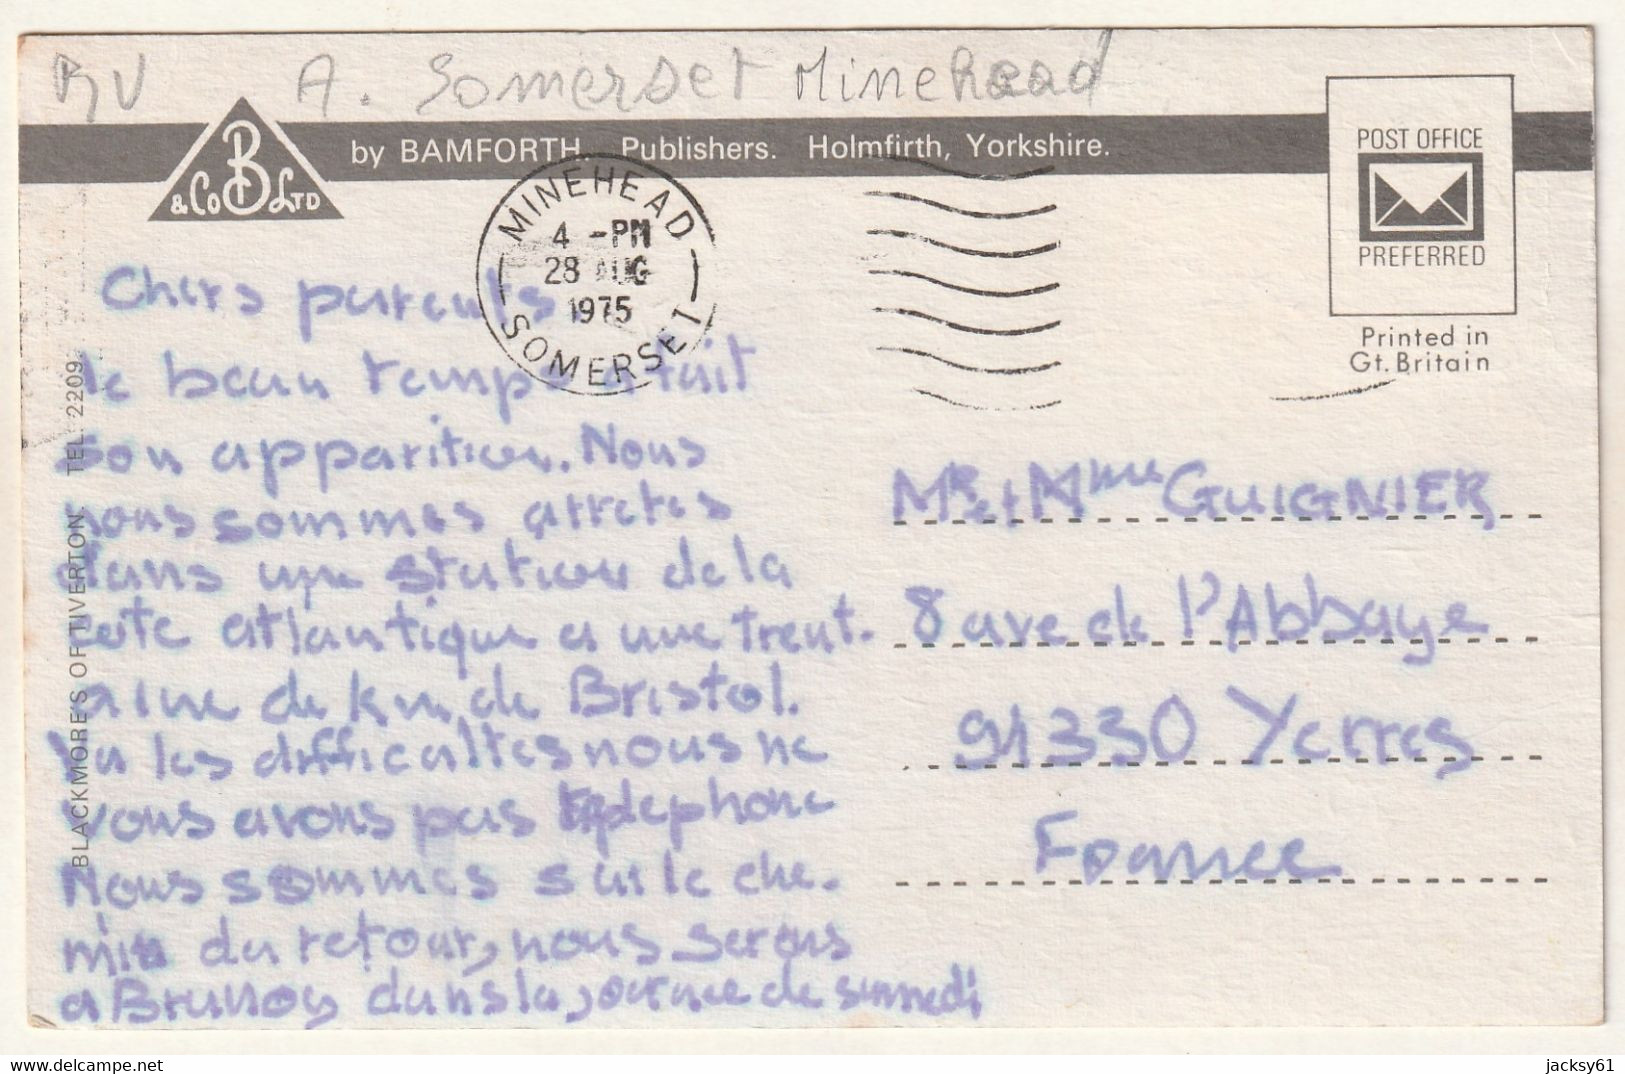 RV A. Somerset Minehead
B & Co Ltd
by BAMFORTH. Publishers. Holmfirth, Yorkshire.
POST OFFICE
PREFERRED
Printed in
Gt. Britain
MINEHEAD
4 -PM
28 AUG
1975
SOMERSET
BLACKMORE'S OF TIVERTON. TEL. 2209.
Chers parents
le beau temps a fait
son apparition. Nous
nous sommes arretes
dans une station de la
cote atlantique a une trent.
aine de km de Bristol.
Vu les difficultes nous ne
vous avons pas telephone
Nous sommes sur le che.
min du retour, nous serons
a Brunoy dans la journee de samedi
Mr et Mme GUIGNIER
8 ave de l'Abbaye
91330 Yerres
France
jacksy61
delcampe.net